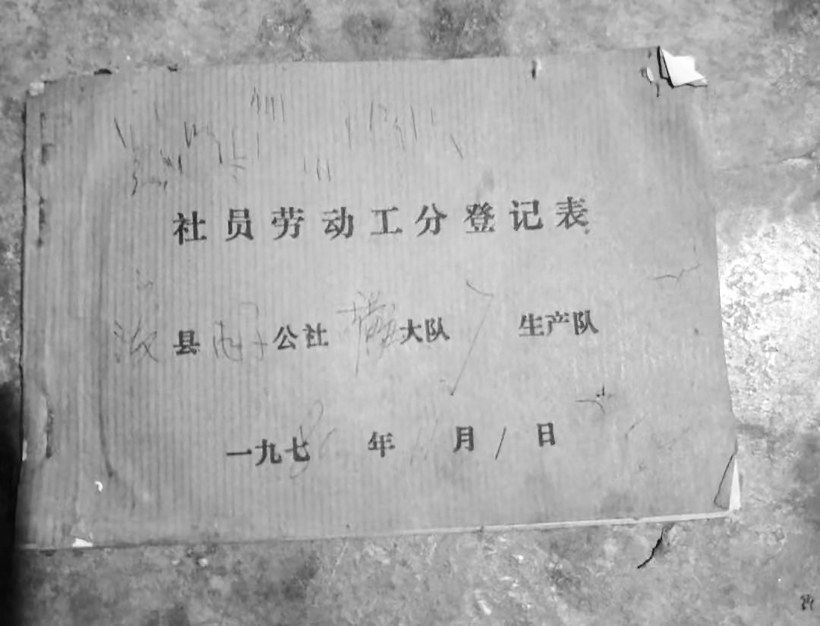 社员劳动工分登记表
县 公社 大队 生产队
一九七 年 月 1 日